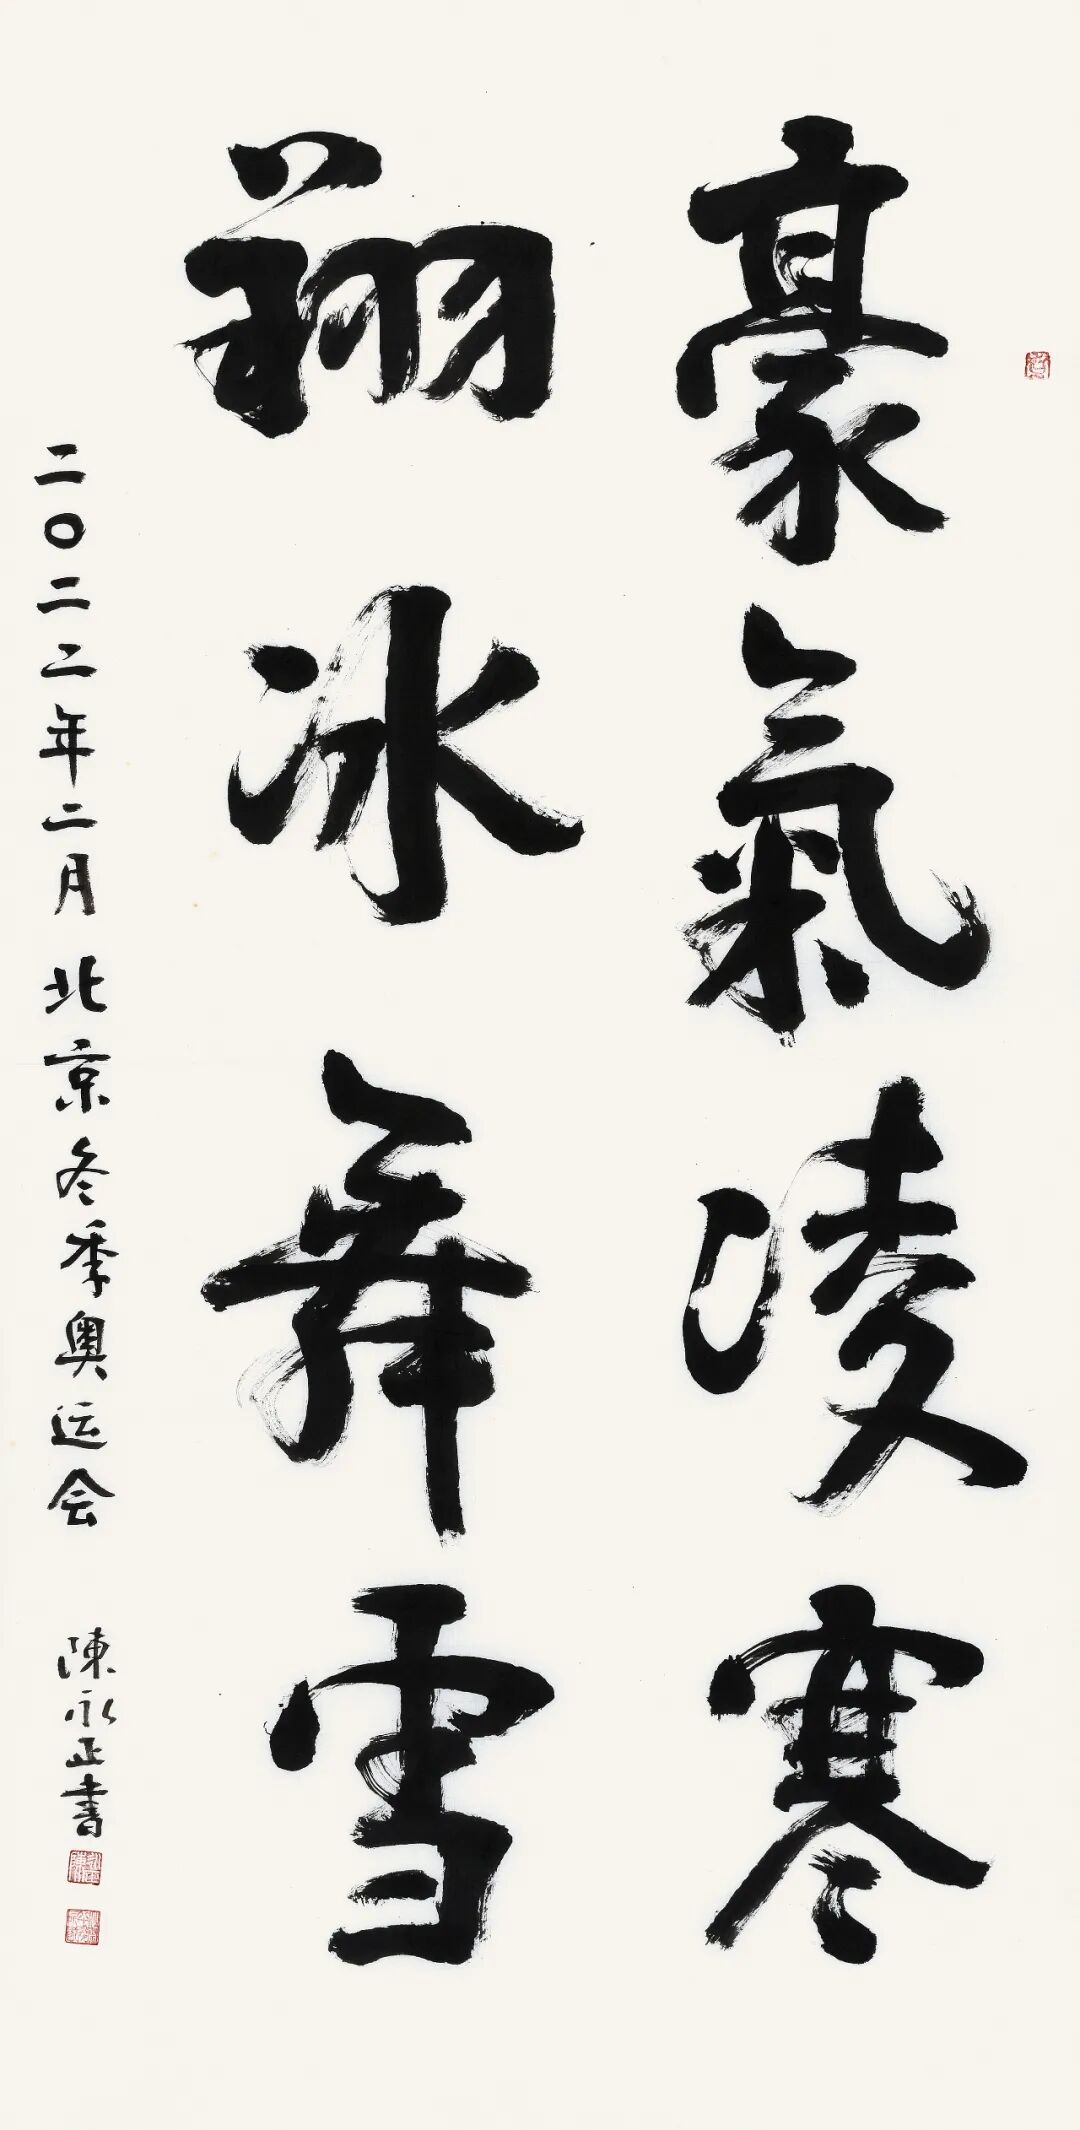 豪氣凌寒
翔冰舞雪
二〇二二年二月北京冬季奥运会
陳永正書